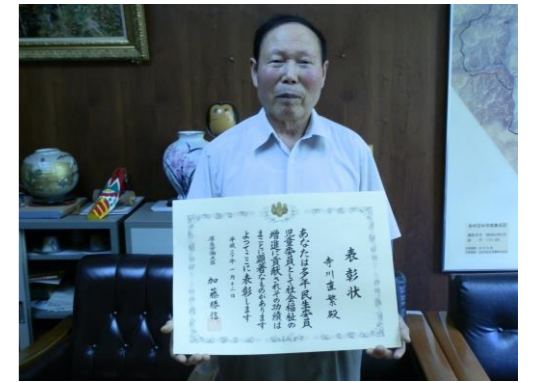 表彰状
寺川直繁殿
あなたは多年民生委員
児童委員として社会福祉の
増進に貢献されその功績は
まことに顕著なものがあります
よってここに表彰します
厚生労働大臣
加藤勝信